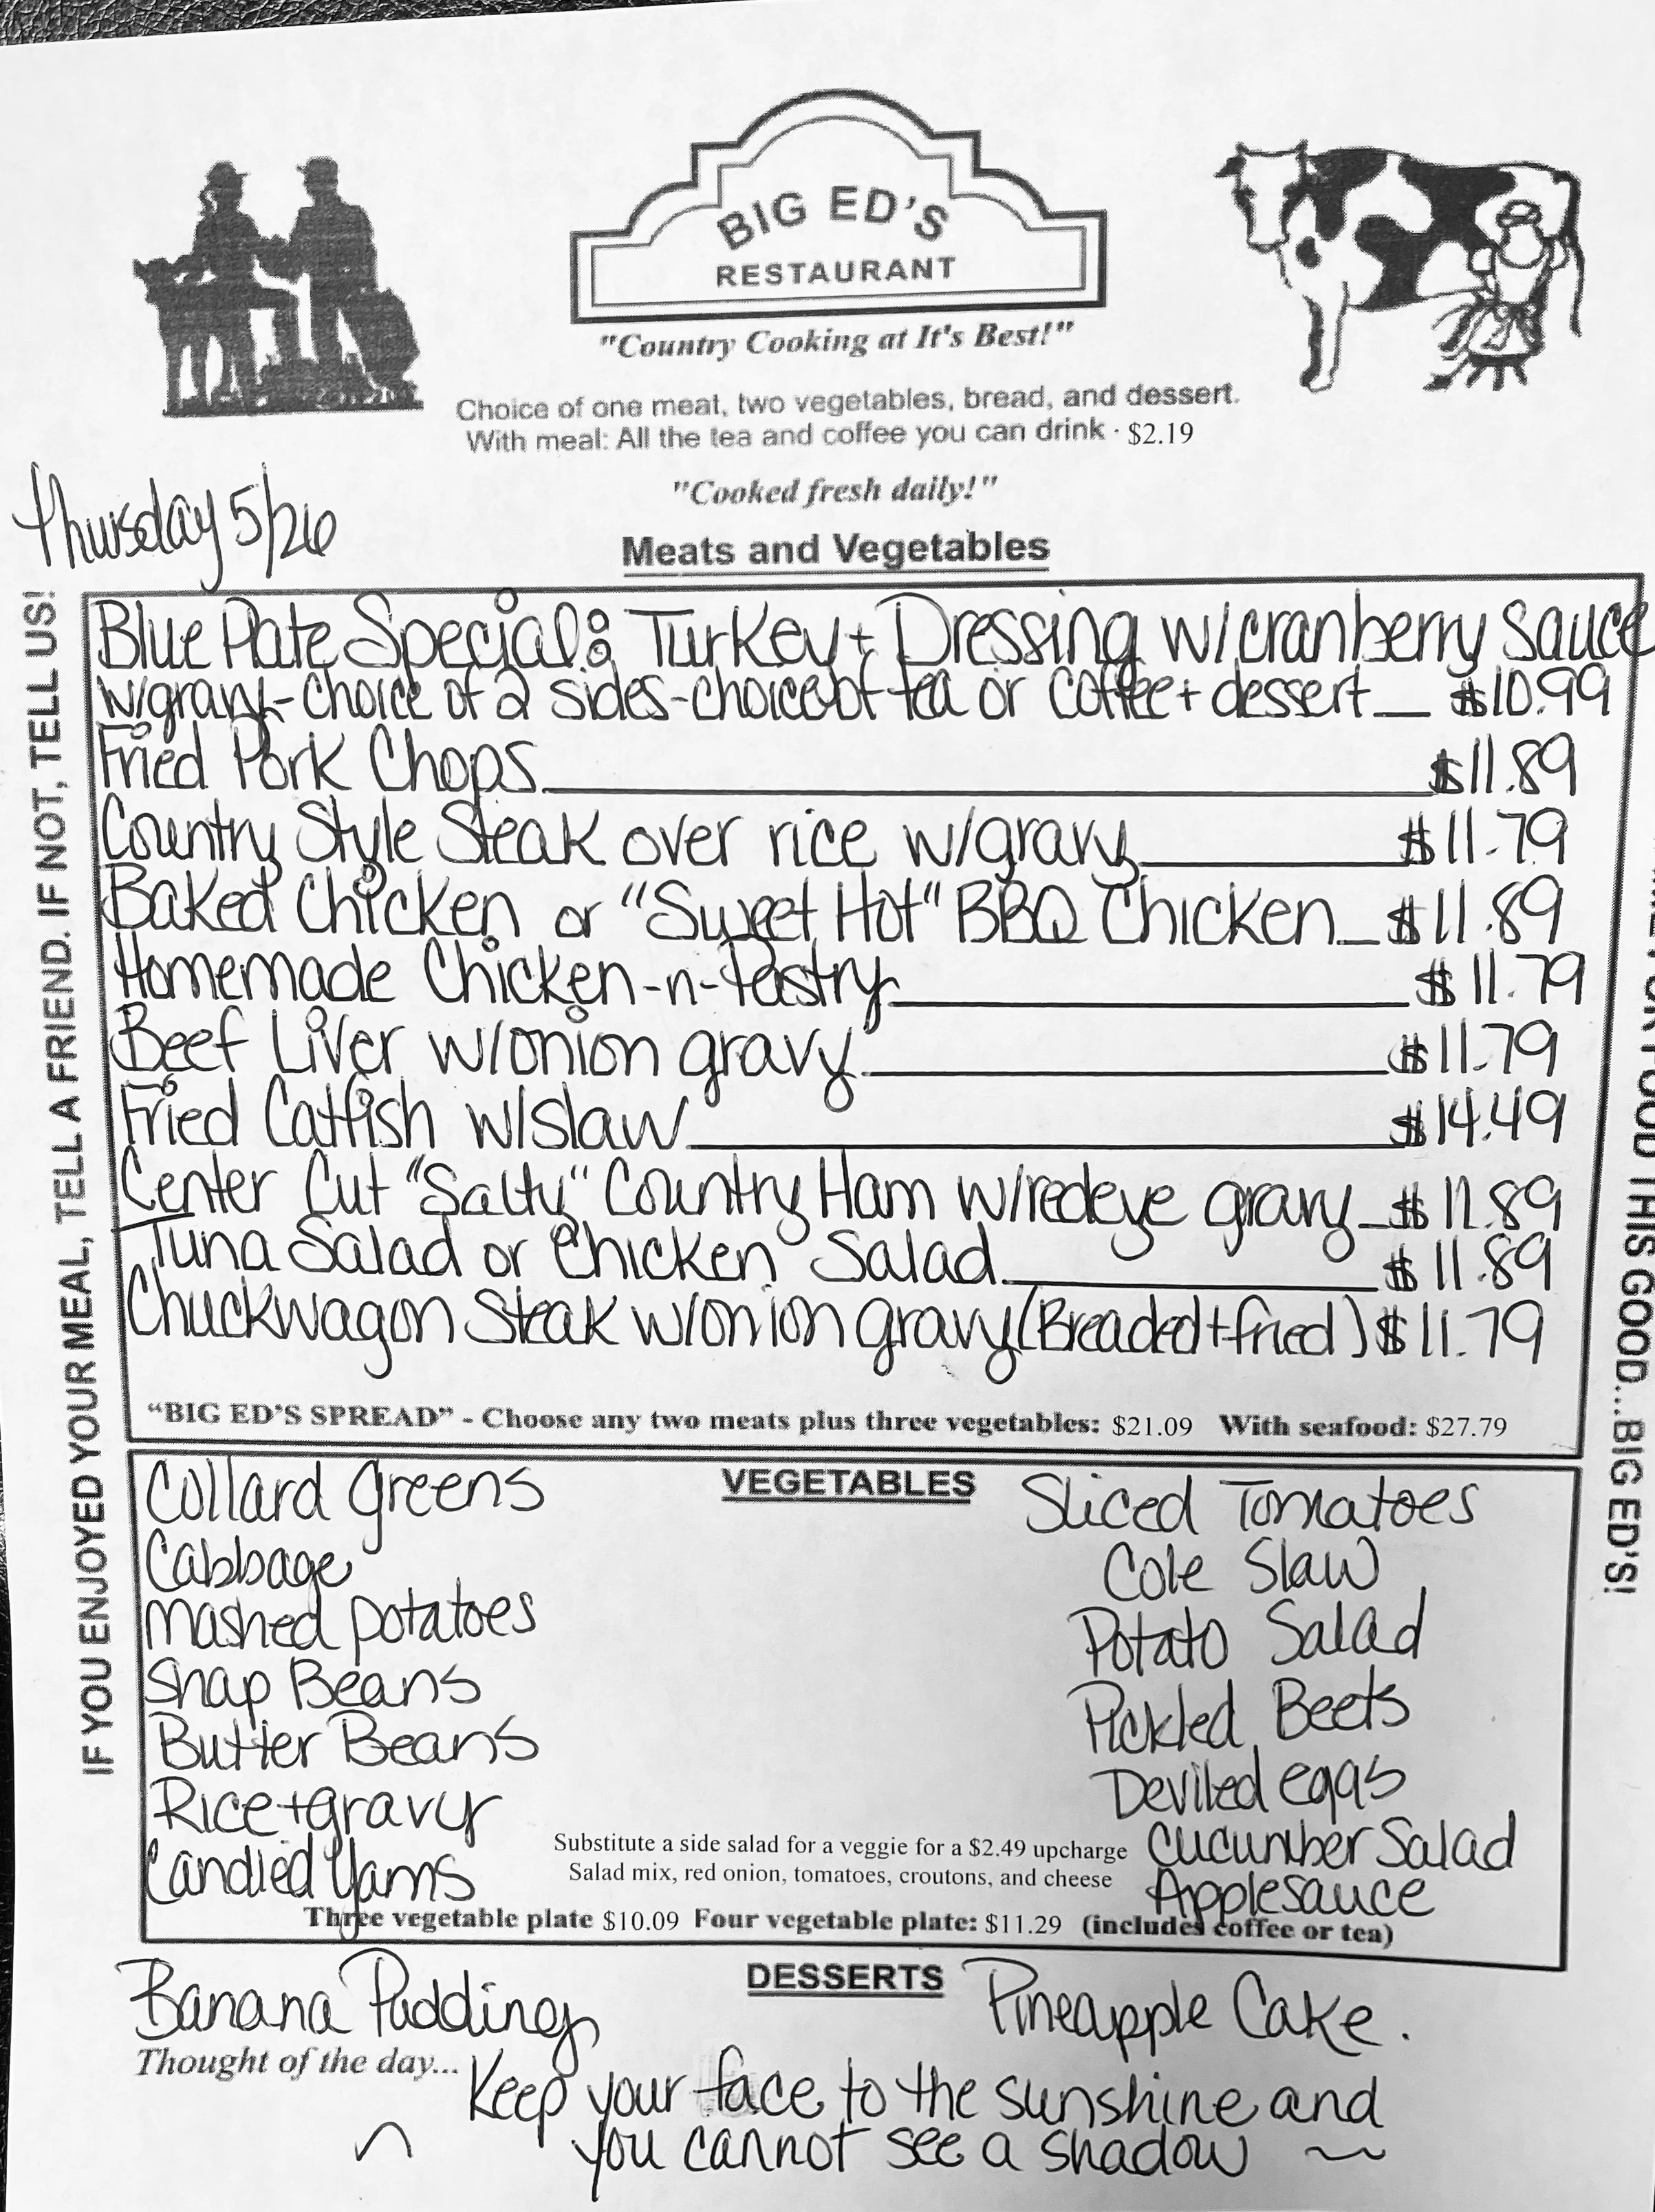 BIG ED'S
RESTAURANT
"Country Cooking at It's Best!"
Choice of one meat, two vegetables, bread, and dessert.
With meal: All the tea and coffee you can drink · $2.19
"Cooked fresh daily!"
Thursday 5/26
Meats and Vegetables
Blue Plate Special: Turkey + Dressing w/cranberry Sauce
w/gravy-choice of 2 sides-choice of tea or coffee + dessert $10.99
Fried Pork Chops $11.89
Country Style Steak over rice w/gravy $11.79
Baked Chicken or "Sweet Hot" BBQ Chicken $11.89
Homemade Chicken-n-Pastry $11.79
Beef Liver w/onion gravy $11.79
Fried Catfish w/slaw $14.49
Center Cut "Salty" Country Ham w/redeye gravy $11.89
Tuna Salad or Chicken Salad $11.89
Chuckwagon Steak w/onion gravy (Breaded + fried) $11.79
"BIG ED'S SPREAD" - Choose any two meats plus three vegetables: $21.09 With seafood: $27.79
VEGETABLES
Collard greens
Cabbage
Mashed potatoes
Snap Beans
Butter Beans
Rice + gravy
Candied Yams
Sliced Tomatoes
Cole Slaw
Potato Salad
Pickled Beets
Deviled eggs
Cucumber Salad
Applesauce
Substitute a side salad for a veggie for a $2.49 upcharge
Salad mix, red onion, tomatoes, croutons, and cheese
Three vegetable plate $10.09 Four vegetable plate: $11.29 (includes coffee or tea)
DESSERTS
Banana Pudding
Pineapple Cake.
Thought of the day... Keep your face to the sunshine and
you cannot see a shadow
IF YOU ENJOYED YOUR MEAL, TELL A FRIEND. IF NOT, TELL US!
FOOD THIS GOOD...BIG ED'S!